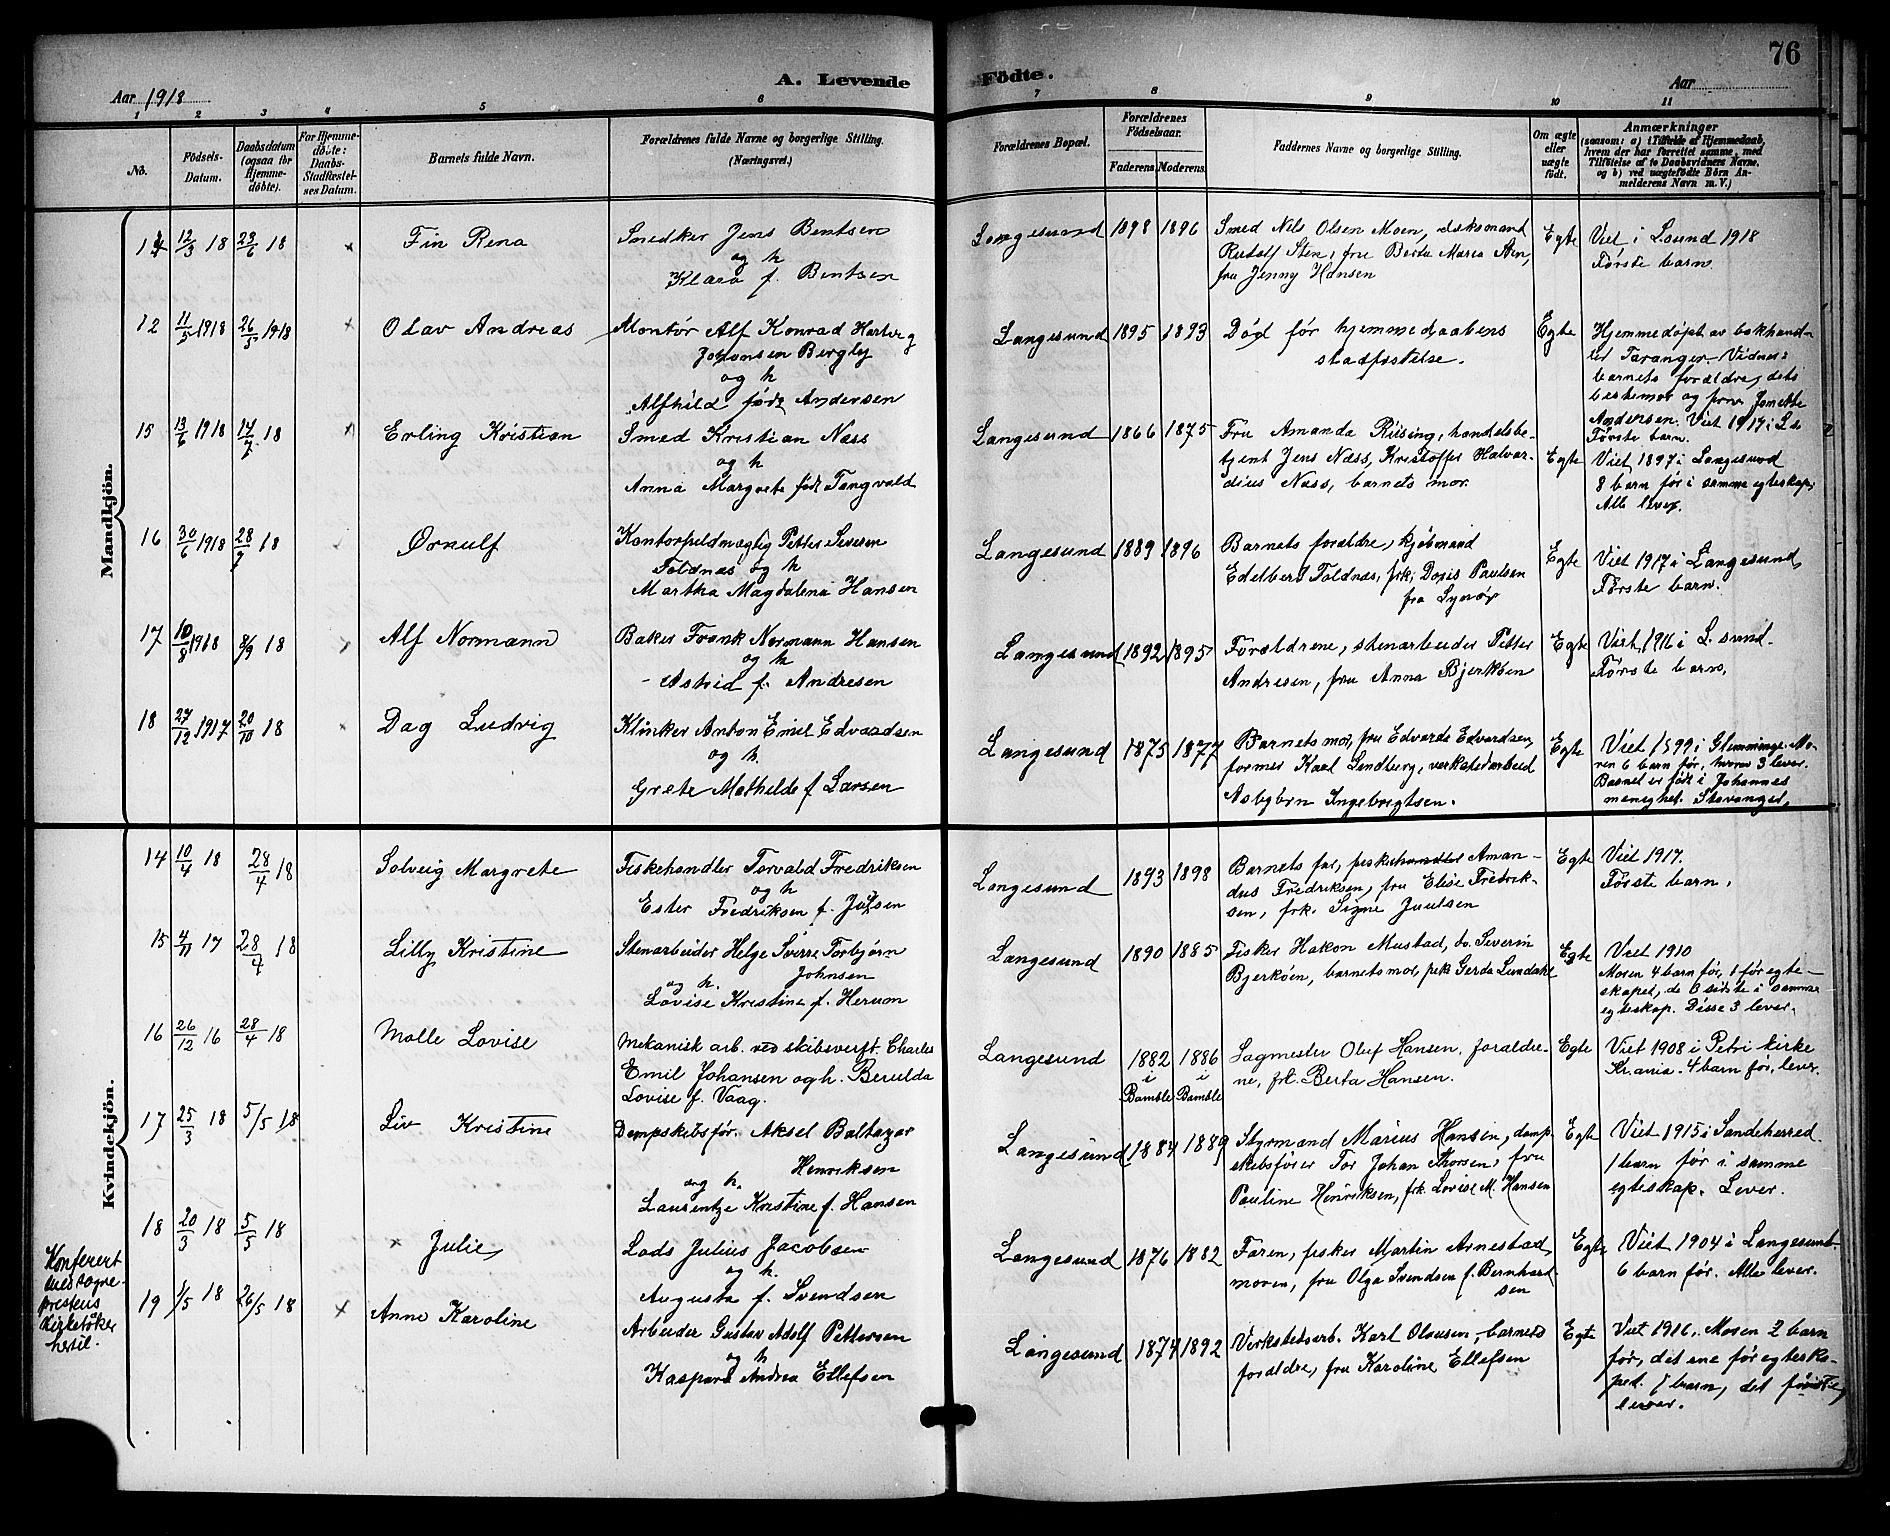 76
A. Levende Födte.
Aar 1918
Aar
1 2 3 4 5 6 7 8 9 10 11
No.
Födsels-Datum.
Daabsdatum (ogsaa for Hjemmedöbte).
For Hjemmedöbte: Daabs-Stadfæstelses Datum.
Barnets fulde Navn.
Forældrenes fulde Navne og borgerlige Stilling. (Næringsvei.)
Forældrenes Bopæl.
Forældrenes Födselsaar.
Faderens Moderens
Faddernes Navne og borgerlige Stilling.
Om ægte eller uægte födt.
Anmærkninger
(saasom: a) i Tilfælde af Hjemmedaab, hvem der har forrettet samme, med Tilföielse af to Daabsvidners Navne, og b) ved uægtefödte Börn Anmelderens Navn m. V.)
Mandkjön.
12/3 18 23/6 18 Fin Rena
Snedker Jens Bentsen
og h
Klara f. Bentsen
Langesund 1898 1896
Smed Nils Olsen Moen, dæksmand
Rudolf Sten, fru Berta Maria Sten,
fru Jenny Hansen
Egte
Viet i Lsund 1918
Første barn
12 11/5 1918 26/5 1918 Olav Andreas
Montør Alf Konrad Hartvig
Johansen Bergly
og h
Alfhild født Andersen
Langesund 1895 1893
Død før hjemmedaabens
stadfæstelse.
Egte
Hjemmedøpt av bokhand-
ler Taranger. Vidner:
barnets forældre, dets
bestemor og frøken Janette
Andersen. Viet 1917 i Ls.
Første barn.
15 13/6 1918 14/7 18 Erling Kristian
Smed Kristian Næss
og h
Anna Margrete født Tangvald
Langesund 1866 1875
Fru Amanda Riising, handelsbe-
tjent Jens Næss, Kristoffer Halvar-
dius Næss, barnets mor.
Egte
Viet 1897 i Langesund
8 barn før i samme egteskap,
Alle lever.
16 30/6 1918 28/7 18 Ørnulf
Kontorfuldmægtig Petter Severin
Foldnæs og h
Martha Magdalena Hansen
Langesund 1889 1896
Barnets forældre, kjøbmand
Edelbert Foldnæs, frk. Doris Paulsen
fra Lyngør
Egte
Viet 1917 i Langesund,
Første barn.
17 10/8 1918 8/9 18 Alf Normann
Baker Frank Normann Hansen
og h
Astrid f. Andresen
Langesund 1892 1895
Forældrene, stenarbeider Petter
Andresen, fru Anna Bjerkøen
Egte
Viet 1916 i L. sund.
Første barn,
18 27/12 1917 20/10 18 Dag Ludvig
Klinker Anton Emil Edvardsen
og h.
Grete Mathilde f Larsen
Langesund 1875 1877
Barnets mor, fru Edvarda Edvardsen,
former Karl Lindberg, verkstedarbeid
Asbjørn Ingebregtsen.
Egte
Viet 1899 i Glemminge. Mo-
ren 6 barn før, hvorav 3 lever.
Barnet er født i Johannes
menighet. Stavanger,
Kvindekjön.
14 10/4 18 28/4 18 Solveig Margrete
Fiskehandler Torvald Fredriksen
og h
Ester Fredriksen f. Julsen
Langesund 1893 1898
Barnets far, fiskehandler Aman-
dus Fredriksen, fru Elise Fredrik-
sen, frk. Signe Juulsen
Egte
Viet 1917.
Første barn.
15 4/11 17 28/4 18 Lilly Kristine
Stenarbeider Helge Sverre Torbjørn
Johnsen
og h.
Lovise Kristine f. Herum
Langesund 1890 1885
Fisker Hakon Mustad, do. Severin
Bjerkøen, barnets mor, frk Gerda Lundahl
Egte
Viet 1910
Moren 4 barn før, 1 før egte-
skapet, de 3 sidste i samme
egteskap. Disse 3 lever.
16 26/12 16 28/4 18 Molle Lovise
Mekanisk arb. ved skibsverft. Charles
Emil Johansen og h. Berulda
Lovise f. Vaag.
Langesund 1882 i Bamble 1886 i Bamble
Sagmester Oluf Hansen, forældre-
ne, frk. Berta Hansen.
Egte
Viet 1908 i Petri kirke
Kr.ania. 4 barn før, lever.
17 25/3 18 5/5 18 Liv Kristine
Dampskibsfør. Aksel Baltazar
Henriksen
og h.
Laurentze Kristine f. Hansen
Langesund 1884 1889
Styrmand Marius Hansen, damp-
skibsfører Tor Johan Thorsen, fru
Pauline Henriksen, frk. Lovise M. Hansen
Egte
Viet 1915 i Sandeherred.
1 barn før i samme
egteskap. Lever.
18 20/3 18 5/5 18 Julie
Lods Julius Jacobsen
og h.
Augusta f. Svendsen
Langesund 1876 1882
Faren, fisker Martin Arnestad,
moren, fru Olga Svendsen f. Bernhard-
sen
Egte
Viet 1904 i Langesund.
6 barn før. Alle lever.
Konferert
med sogne-
prestens
kirkebøker
hertil.
19 1/5 18 26/5 18 Anne Karoline
Arbeider Gustav Adolf Pettersen
og h
Kaspara Andrea Ellefsen
Langesund 1874 1892
Verkstedsarb. Karl Olausen, barnets
forældre, fru Karoline Ellefsen
Egte
Viet 1916. Moren 2 barn
før, det ene før egteska-
pet. 1 barn, det første,
lever.